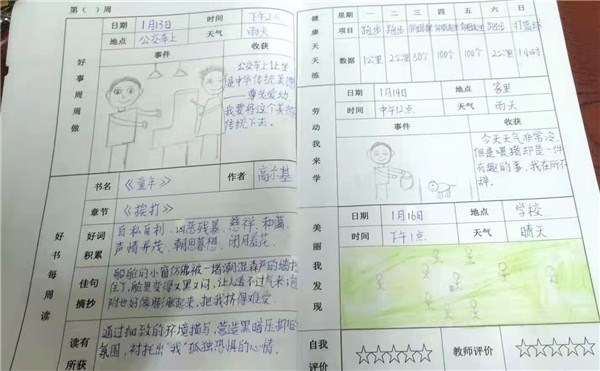 第（ ）周
日期 1月13日 时间 下午2点
地点 公交车上 天气 雨天
好事周周做
事件 收获
公交车上让座
是中华传统美德
——尊老爱幼
我要将这个美德
传统下去。
书名 《童年》 作者 高尔基
好书每周读
章节 《挨打》
好词积累
自私自利、凶恶残暴、慈祥、和蔼、
声情并茂、朝思暮想、闭月羞花
佳句摘抄
船舱的小窗仿佛被一堵潮湿森严的墙挡
住了,船里变得又黑又闷,让人喘不过气来,
把我挤得难受
读有所获
通过细致的环境描写,营造黑暗压抑的
氛围,衬托出“我”孤独恐惧的心情。
健康天天练
星期 一 二 三 四 五 六 日
项目 跑步 跑步 跑步 打篮球
数据 1公里 2公里 50个 100个 100个 2公里 1小时
劳动我来学
日期 1月14日 地点 家里
时间 中午12点 天气 雨天
事件 收获
今天天气非常冷,
但是喂猪却是一件
有趣的事,我在所不
辞。
美丽我发现
日期 1月16日 地点 学校
时间 下午1点 天气 晴天
自我评价 ☆☆☆☆☆ 教师评价 ☆☆☆☆☆